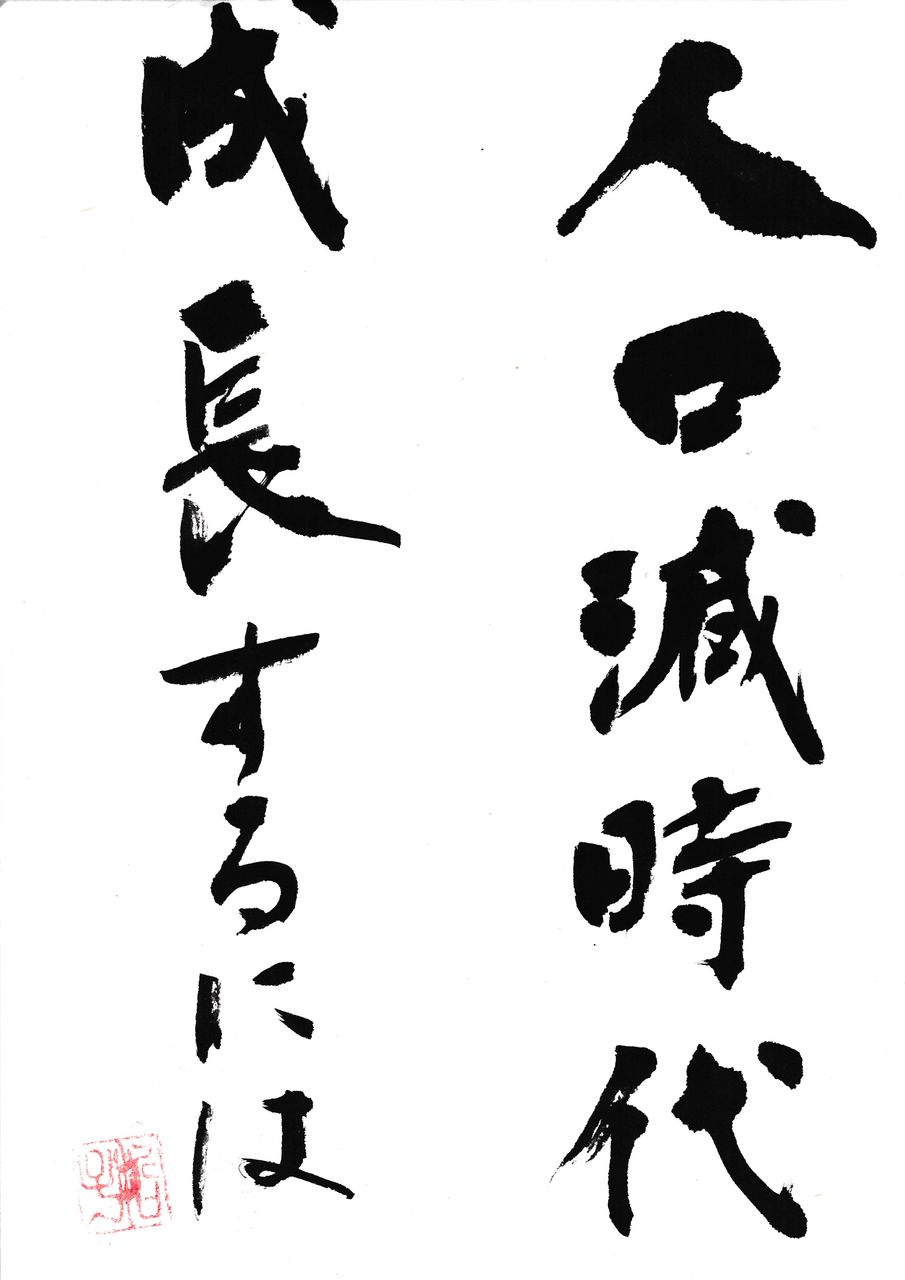 人口減時代
成長するには